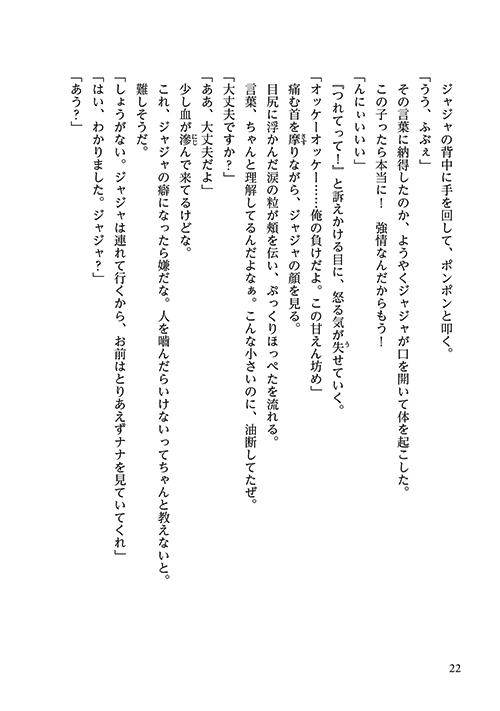 ジャジャの背中に手を回して、ポンポンと叩く。
「うう、ふぶぇ」
その言葉に納得したのか、ようやくジャジャが口を開いて体を起こした。
この子ったら本当に！　強情なんだからもう！
「んにぃいいい」
『つれてって！』と訴えかける目に、怒る気が失せていく。
「オッケーオッケー……俺の負けだよ。この甘えん坊め」
痛む首を摩りながら、ジャジャの顔を見る。
目尻に浮かんだ涙の粒が頬を伝い、ぷっくりほっぺたを流れる。
言葉、ちゃんと理解してるんだよなぁ。こんな小さいのに、油断してたぜ。
「大丈夫ですか？」
「ああ、大丈夫だよ」
少し血が滲んで来てるけどな。
これ、ジャジャの癖になったら嫌だな。人を嚙んだらいけないってちゃんと教えないと。
難しそうだ。
「しょうがない。ジャジャは連れて行くから、お前はとりあえずナナを見ていてくれ」
「はい、わかりました。ジャジャ？」
「あう？」
22